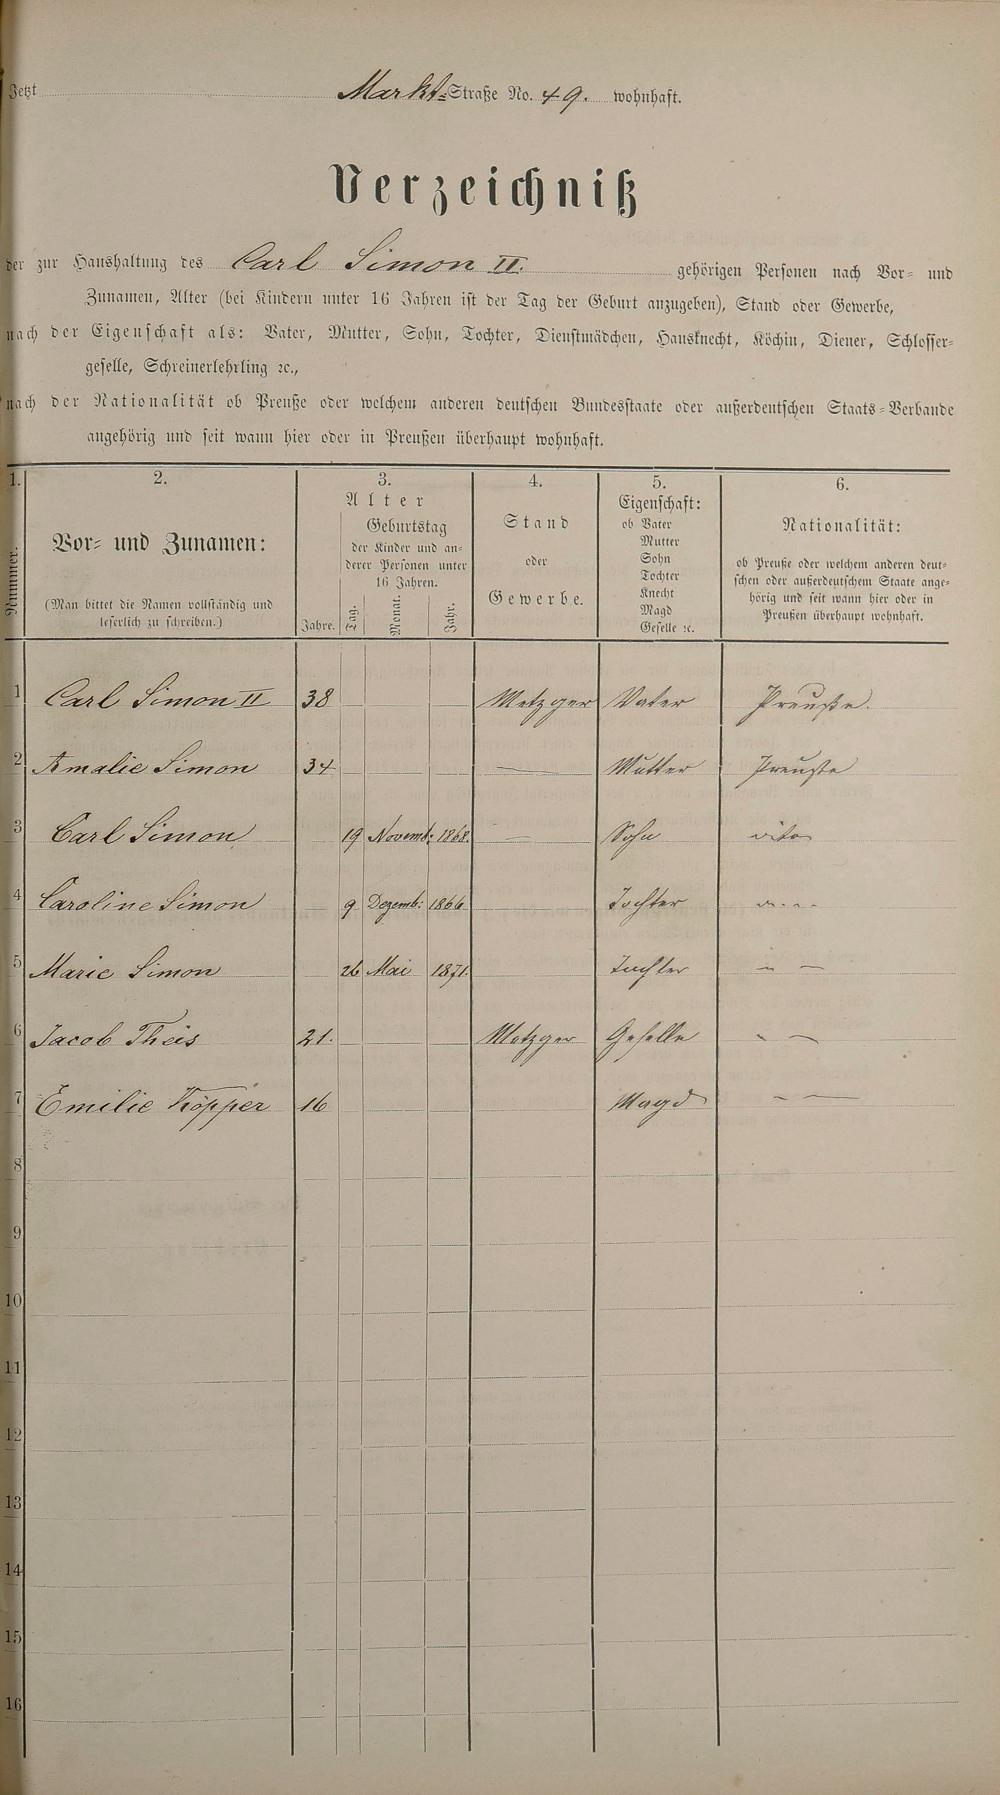 Jetzt Markt-Straße No. 49. wohnhaft.
Verzeichniß
der zur Haushaltung des Carl Simon II. gehörigen Personen nach Vor- und
Zunamen, Alter (bei Kindern unter 16 Jahren ist der Tag der Geburt anzugeben), Stand oder Gewerbe,
nach der Eigenschaft als: Vater, Mutter, Sohn, Tochter, Dienstmädchen, Hausknecht, Köchin, Diener, Schlosser-
geselle, Schreinerlehrling ꝛc.,
nach der Nationalität ob Preuße oder welchem anderen deutschen Bundesstaate oder außerdeutschen Staats-Verbande
angehörig und seit wann hier oder in Preußen überhaupt wohnhaft.
1. 2. 3. 4. 5. 6.
Nummer.
Vor- und Zunamen:
(Man bittet die Namen vollständig und
leserlich zu schreiben.)
Alter
Geburtstag
der Kinder und an-
derer Personen unter
16 Jahren.
Jahre. Tag. Monat. Jahr.
Stand
oder
Gewerbe.
Eigenschaft:
ob Vater
Mutter
Sohn
Tochter
Knecht
Magd
Geselle ꝛc.
Nationalität:
ob Preuße oder welchem anderen deut-
schen oder außerdeutschem Staate ange-
hörig und seit wann hier oder in
Preußen überhaupt wohnhaft.
1 Carl Simon II 38 Metzger Vater Preuße.
2 Amalie Simon 34 — Mutter Preuße
3 Carl Simon 19 Novemb: 1868. — Sohn dito
4 Caroline Simon 9 Dezemb: 1866 Tochter
5 Marie Simon 26 Mai 1871. Tochter " —
6 Jacob Theis 21. Metzger Geselle " —
7 Emilie Köpper 16 Magd - —
8
9
10
11
12
13
14
15
16